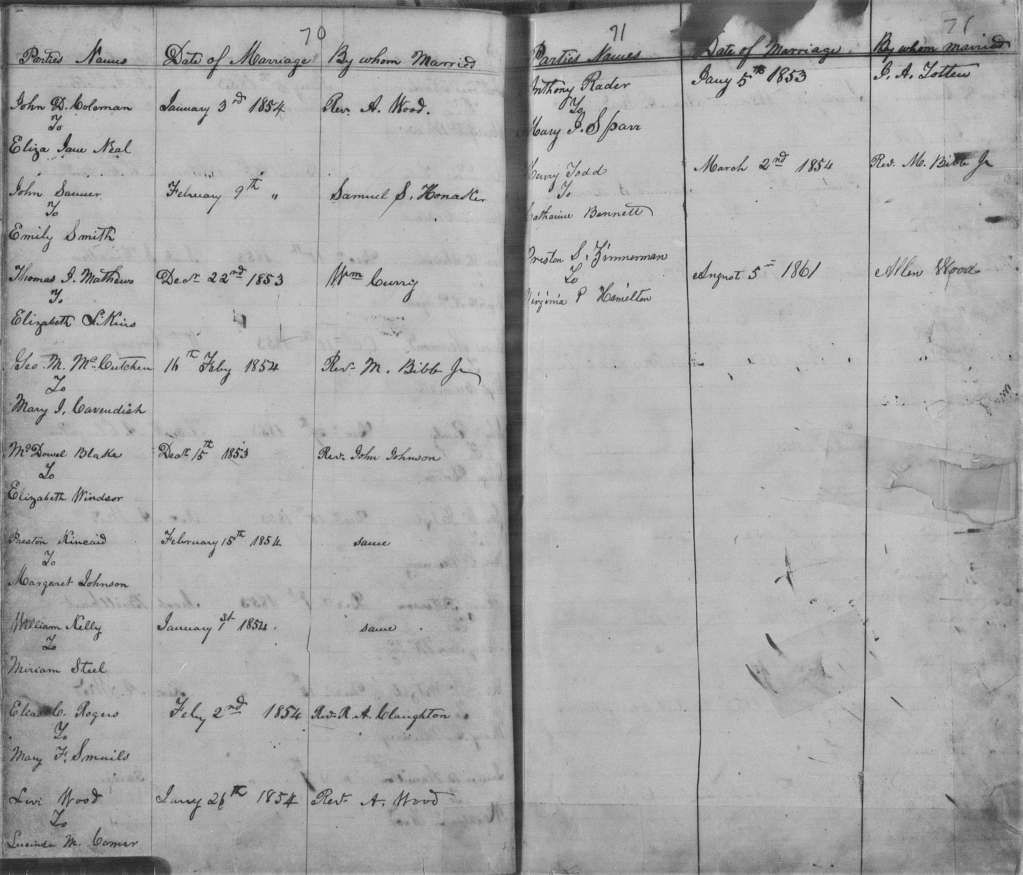 70
Parties Names Date of Marriage By whom Married
John D. Coleman January 3rd 1854 Rev. A. Wood.
To
Eliza Jane Neal
John February 9th " Samuel S. Honaker
To
Emily Smith
Thomas J. Mathews Decr 22nd 1853 Wm Curry
To
Elizabeth Sikins
Geo. M. McCutchen 16th Feby 1854 Rev. M. Bibb Jr
To
Mary J. Cavendish
McDowel Blake Decr 15th 1853 Rev. John Johnson
To
Elizabeth Windsor
Preston Kincaid February 15th 1854 same
To
Margaret Johnson
William Kelly January 1st 1854. same
To
Miriam Steel
C. Rogers Feby 2nd 1854 Rev. R. A. Claughton
To
Mary F. Smails
Levi Wood Jany 26th 1854 Rev. A. Wood
To
Lucinda M. Comer
71 71
Parties Names Date of Marriage By whom married
Anthony Rader Jany 5th 1853 J. A. Totten
To
Mary J. Sparr
Henry Todd March 2nd 1854 Rev. M. Bibb Jr
To
Catharine Bennett
Preston S. Zimmerman August 5th 1861 Allen Wood
To
Virginia P Hamilton